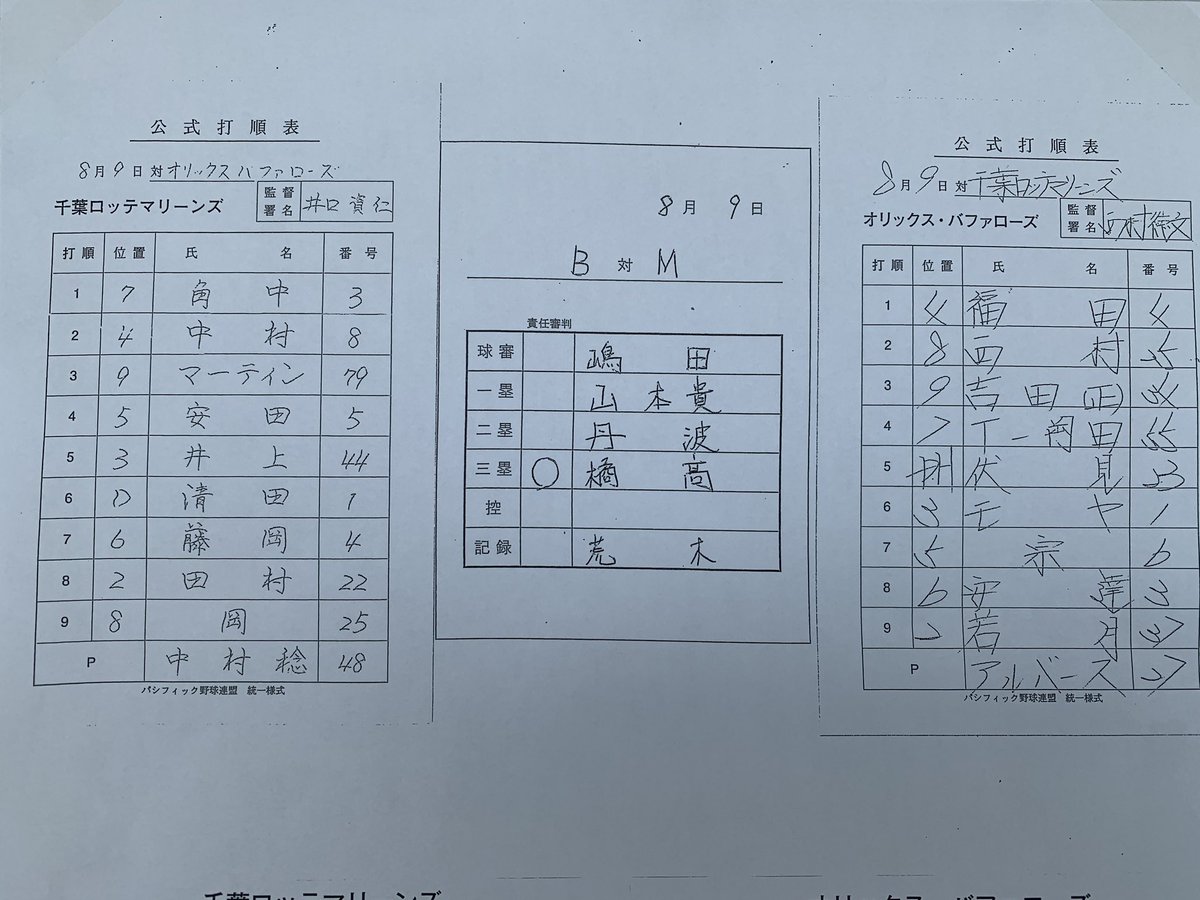 公式打順表
8月9日対オリックスバファローズ
千葉ロッテマリーンズ 監督署名 井口資仁
打順 位置 氏名 番号
1 7 角中 3
2 4 中村 8
3 9 マーティン 79
4 5 安田 5
5 3 井上 44
6 D 清田 1
7 6 藤岡 4
8 2 田村 22
9 8 岡 25
P 中村稔 48
パシフィック野球連盟 統一様式
8月9日
B対M
責任審判
球審 嶋田
一塁 山本貴
二塁 丹波
三塁 ○ 橘高
控
記録 荒木
公式打順表
8月9日対千葉ロッテマリーンズ
オリックス・バファローズ 監督署名 西村徳文
打順 位置 氏名 番号
1 4 福田 4
2 8 西村 25
3 9 吉田(正) 34
4 7 T-岡田 55
5 DH 伏見 23
6 3 モヤ 1
7 5 宗 6
8 6 安達 3
9 2 若月 37
P アルバース 27
パシフィック野球連盟 統一様式
千葉ロッテマリーンズ
オリックス・バファローズ